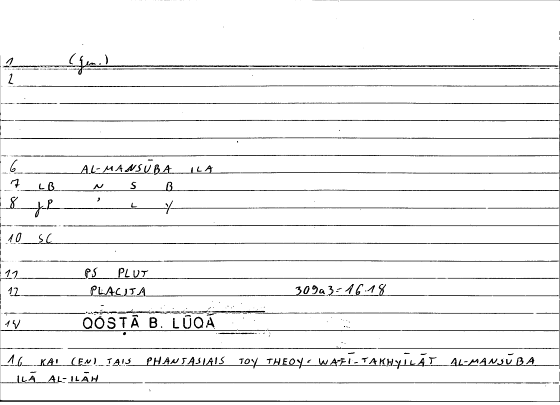 1 (gen.)
2
6 AL-MANSŪBA ILA
7 LB N S B
8 JP ' L Y
10 SC
11 PS PLUT
12 PLACITA 309a3=16-18
14 QOSṬĀ B. LŪQĀ
16 KAI (EN) TAIS PHANTASIAIS TOY THEOY= WAFĪ-TAKHYĪLĀT AL-MANSŪBA
ILĀ AL-ILĀH